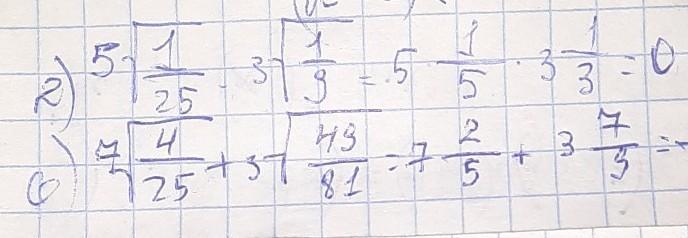 2) 5√(1/25) - 3√(1/9) = 5 · 1/5 · 3 1/3 = 0
6) 7√(4/25) + 3√(49/81) = 7 2/5 + 3 7/9 =